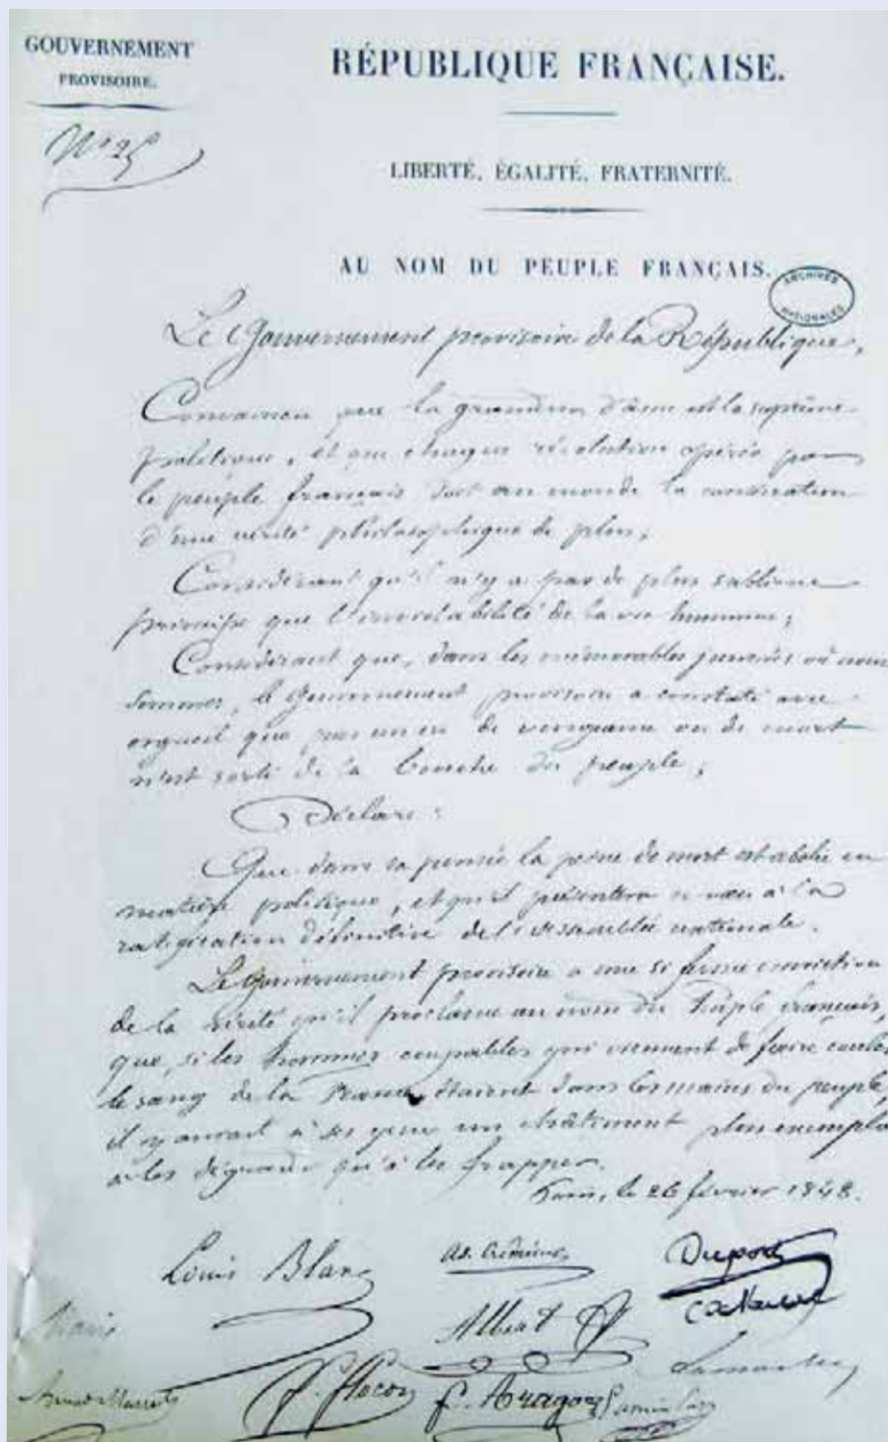 GOUVERNEMENT
PROVISOIRE.
RÉPUBLIQUE FRANÇAISE.
LIBERTÉ, ÉGALITÉ, FRATERNITÉ.
AU NOM DU PEUPLE FRANÇAIS.
ARCHIVES
NATIONALES
Le Gouvernement provisoire de la République,
Convaincu que la grandeur d'âme est la suprême
politique, et que chaque révolution opérée par
le peuple français doit au monde la consécration
d'une vérité philosophique de plus;
Considérant qu'il n'y a pas de plus sublime
principe que l'inviolabilité de la vie humaine;
Considérant que, dans les mémorables journées où nous
sommes, le Gouvernement provisoire a constaté avec
orgueil que pas un cri de vengeance ou de mort
n'est sorti de la bouche du peuple;
Déclare:
Que dans sa pensée la peine de mort est abolie en
matière politique, et qu'il présentera ce vœu à la
ratification définitive de l'Assemblée nationale.
Le Gouvernement provisoire a une si ferme conviction
de la vérité qu'il proclame au nom du Peuple français,
que, si les hommes coupables qui viennent de faire couler
le sang de la France étaient dans les mains du peuple,
il y aurait à ses yeux un châtiment plus exempla
à les dégrader qu'à les frapper.
Paris, le 26 février 1848.
Louis Blanc
Ad. Crémieux
Dupont
Marie
Albert
Lamartine
Armand Marrast
F. Flocon
F. Arago